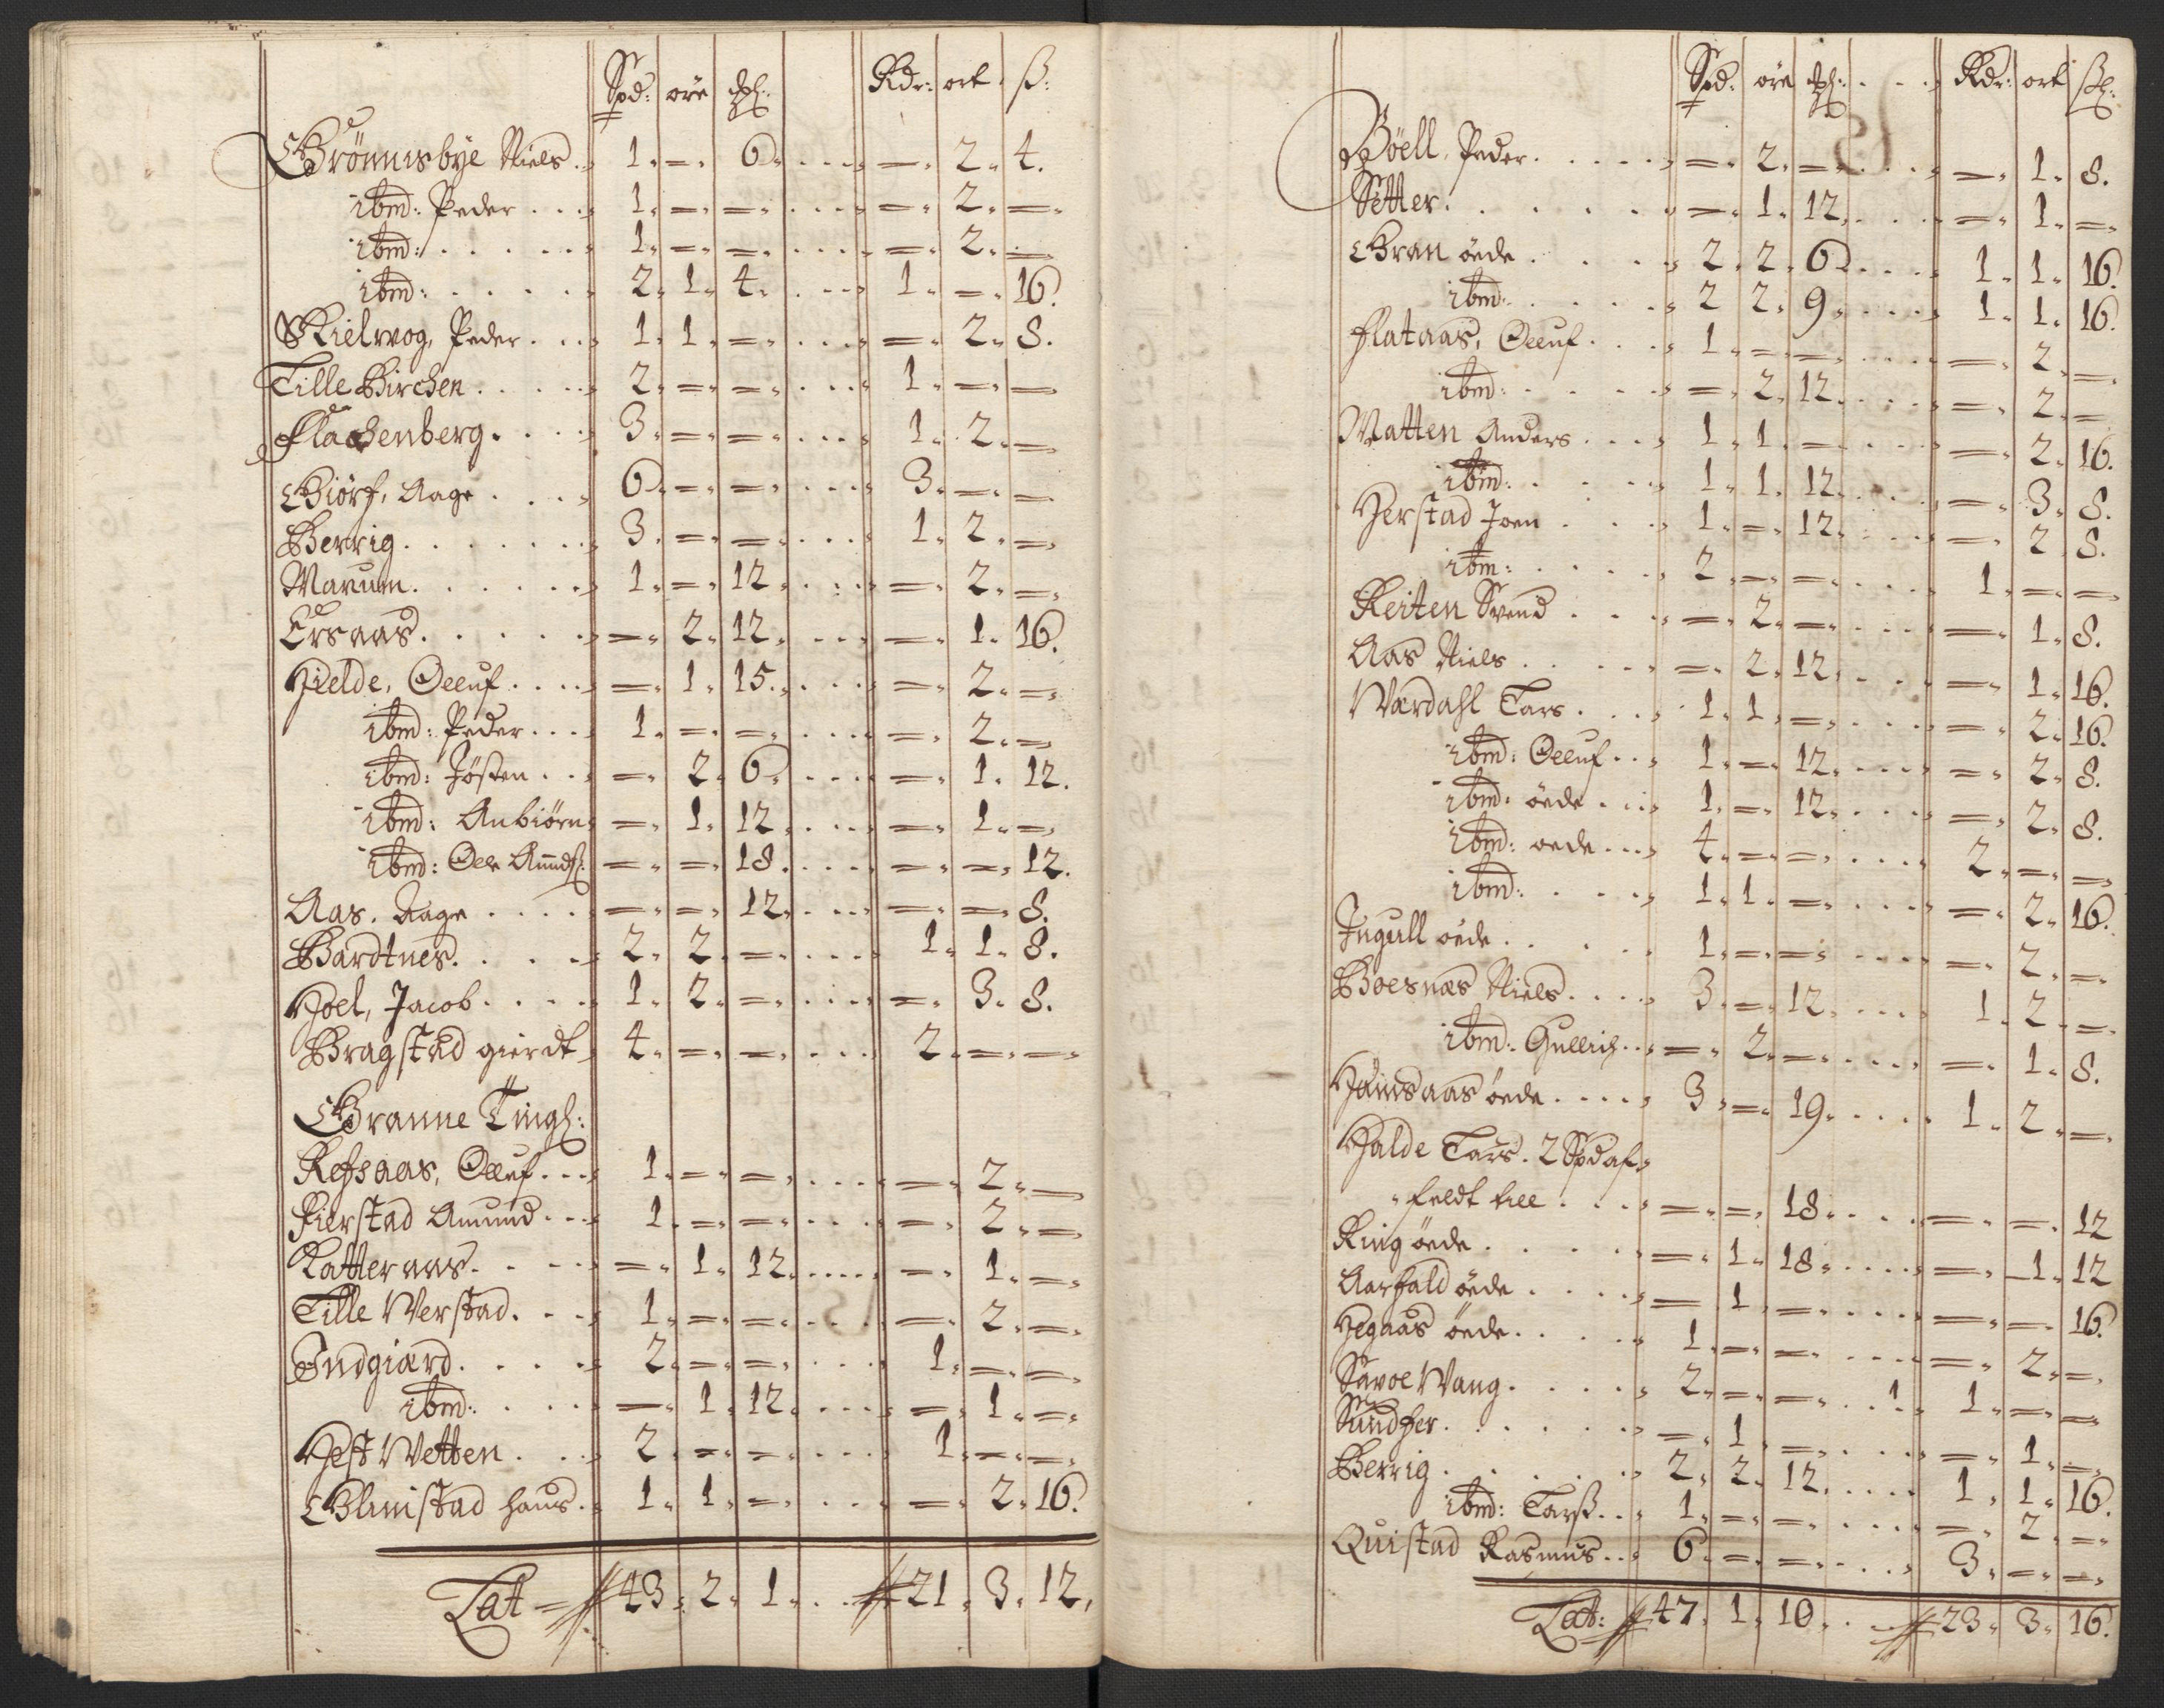 Spd: öre ₰: Rdr: ort ß:
Grönnisbye Niels 1. =. 6. =. 2. 4.
ibm: Peder 1. =. =. =. 2. =.
ibm: 1. =. =. =. 2. =.
ibm: 2. 1. 4. 1. =. 16.
Kielwog, Peder 1. 1. =. =. 2. 8.
Tille Birchen 2. =. =. 1. =. =.
Flachenberg 3. =. =. 1. 2. =.
Giörf, Aage 6. =. =. 3. =. =.
Berrig 3. =. =. 1. 2. =.
Marum 1. =. 12. =. 2. =.
Ersaas =. 2. 12. =. 1. 16.
Hielde, Oeluf =. 1. 15. =. 2. =.
ibm: Peder 1. =. =. =. 2. =.
ibm: Jösten =. 2. 6. =. 1. 12.
ibm: Anbiörn =. 1. 12. =. 1. =.
ibm: Ole Amunds: =. =. 18. =. =. 12.
Aas. Aage =. =. 12. =. =. 8.
Bardtnes 2. 2. =. 1. 1. 8.
Hoel, Jacob 1. 2. =. =. 3. 8.
Bragstad gierdt 4. =. =. 2. =. =.
Granne Tingl:
Refsaas, Oluf 1. =. =. =. 2. =.
Fierstad Amund 1. =. =. =. 2. =.
Katteraas =. 1. 12. =. 1. =.
Tille Werstad 1. =. =. =. 2. =.
Indgiærd 2. =. =. 1. =. =.
ibm: =. 1. 12. =. 1. =.
Hest Wetten 2. =. =. 1. =. =.
Glmistad haus 1. 1. =. =. 2. 16.
Lat = 43. 2. 1. 21. 3. 12.
Spd: öre ₰: Rdr: ort ß:
Böell, Peder =. 2. =. =. 1. 8.
Setter =. 1. 12. =. 1. =.
Gran öede 2. 2. 6. 1. 1. 16.
ibm: 2 2. 9. 1. 1. 16.
Flataas, Oeluf 1. =. =. =. 2. =.
ibm: =. 2. 12. =. 2. =.
Matten Anders 1. 1. =. =. 2. 16.
ibm: 1. 1. 12. =. 3. 8.
Herstad Joen 1. =. 12. =. 2. 8.
ibm: 2. =. =. 1. =. =.
Reiten Svend =. 2. =. =. 1. 8.
Aas Niels =. 2. 12. =. 1. 16.
Wærdahl Lars 1. 1. =. =. 2. 16.
ibm: Oeluf 1. =. 12. =. 2. 8.
ibm: öede 1. =. 12. =. 2. 8.
ibm: oede 4. =. =. 2. =. =.
ibm: 1. 1. =. =. 2. 16.
Ingull oede 1. =. =. =. 2. =.
Boesnæs Niels 3. =. 12. 1. 2. =.
ibm: Gullich =. 2. =. =. 1. 8.
Hamsaas öede 3. =. 19. 1. 2. =.
Halde Lars. 2 Spd af
feldt till =. =. 18. =. =. 12
Ring öede =. 1. 18. =. 1. 12
Aarfald öede = 1. =. =. =. 16.
Hegaas öede 1. =. =. =. 2. =.
Savoe Wang 2. =. =. 1 1. =. =.
Sundfer =. 1. =. =. 1. =.
Berrig 2. 2. 12. 1. 1. 16.
ibm: Larß 1. =. =. =. 2. =.
Quistad Rasmus 6. =. =. 3. =. =.
Lat: 47. 1. 10. 23. 3. 16.